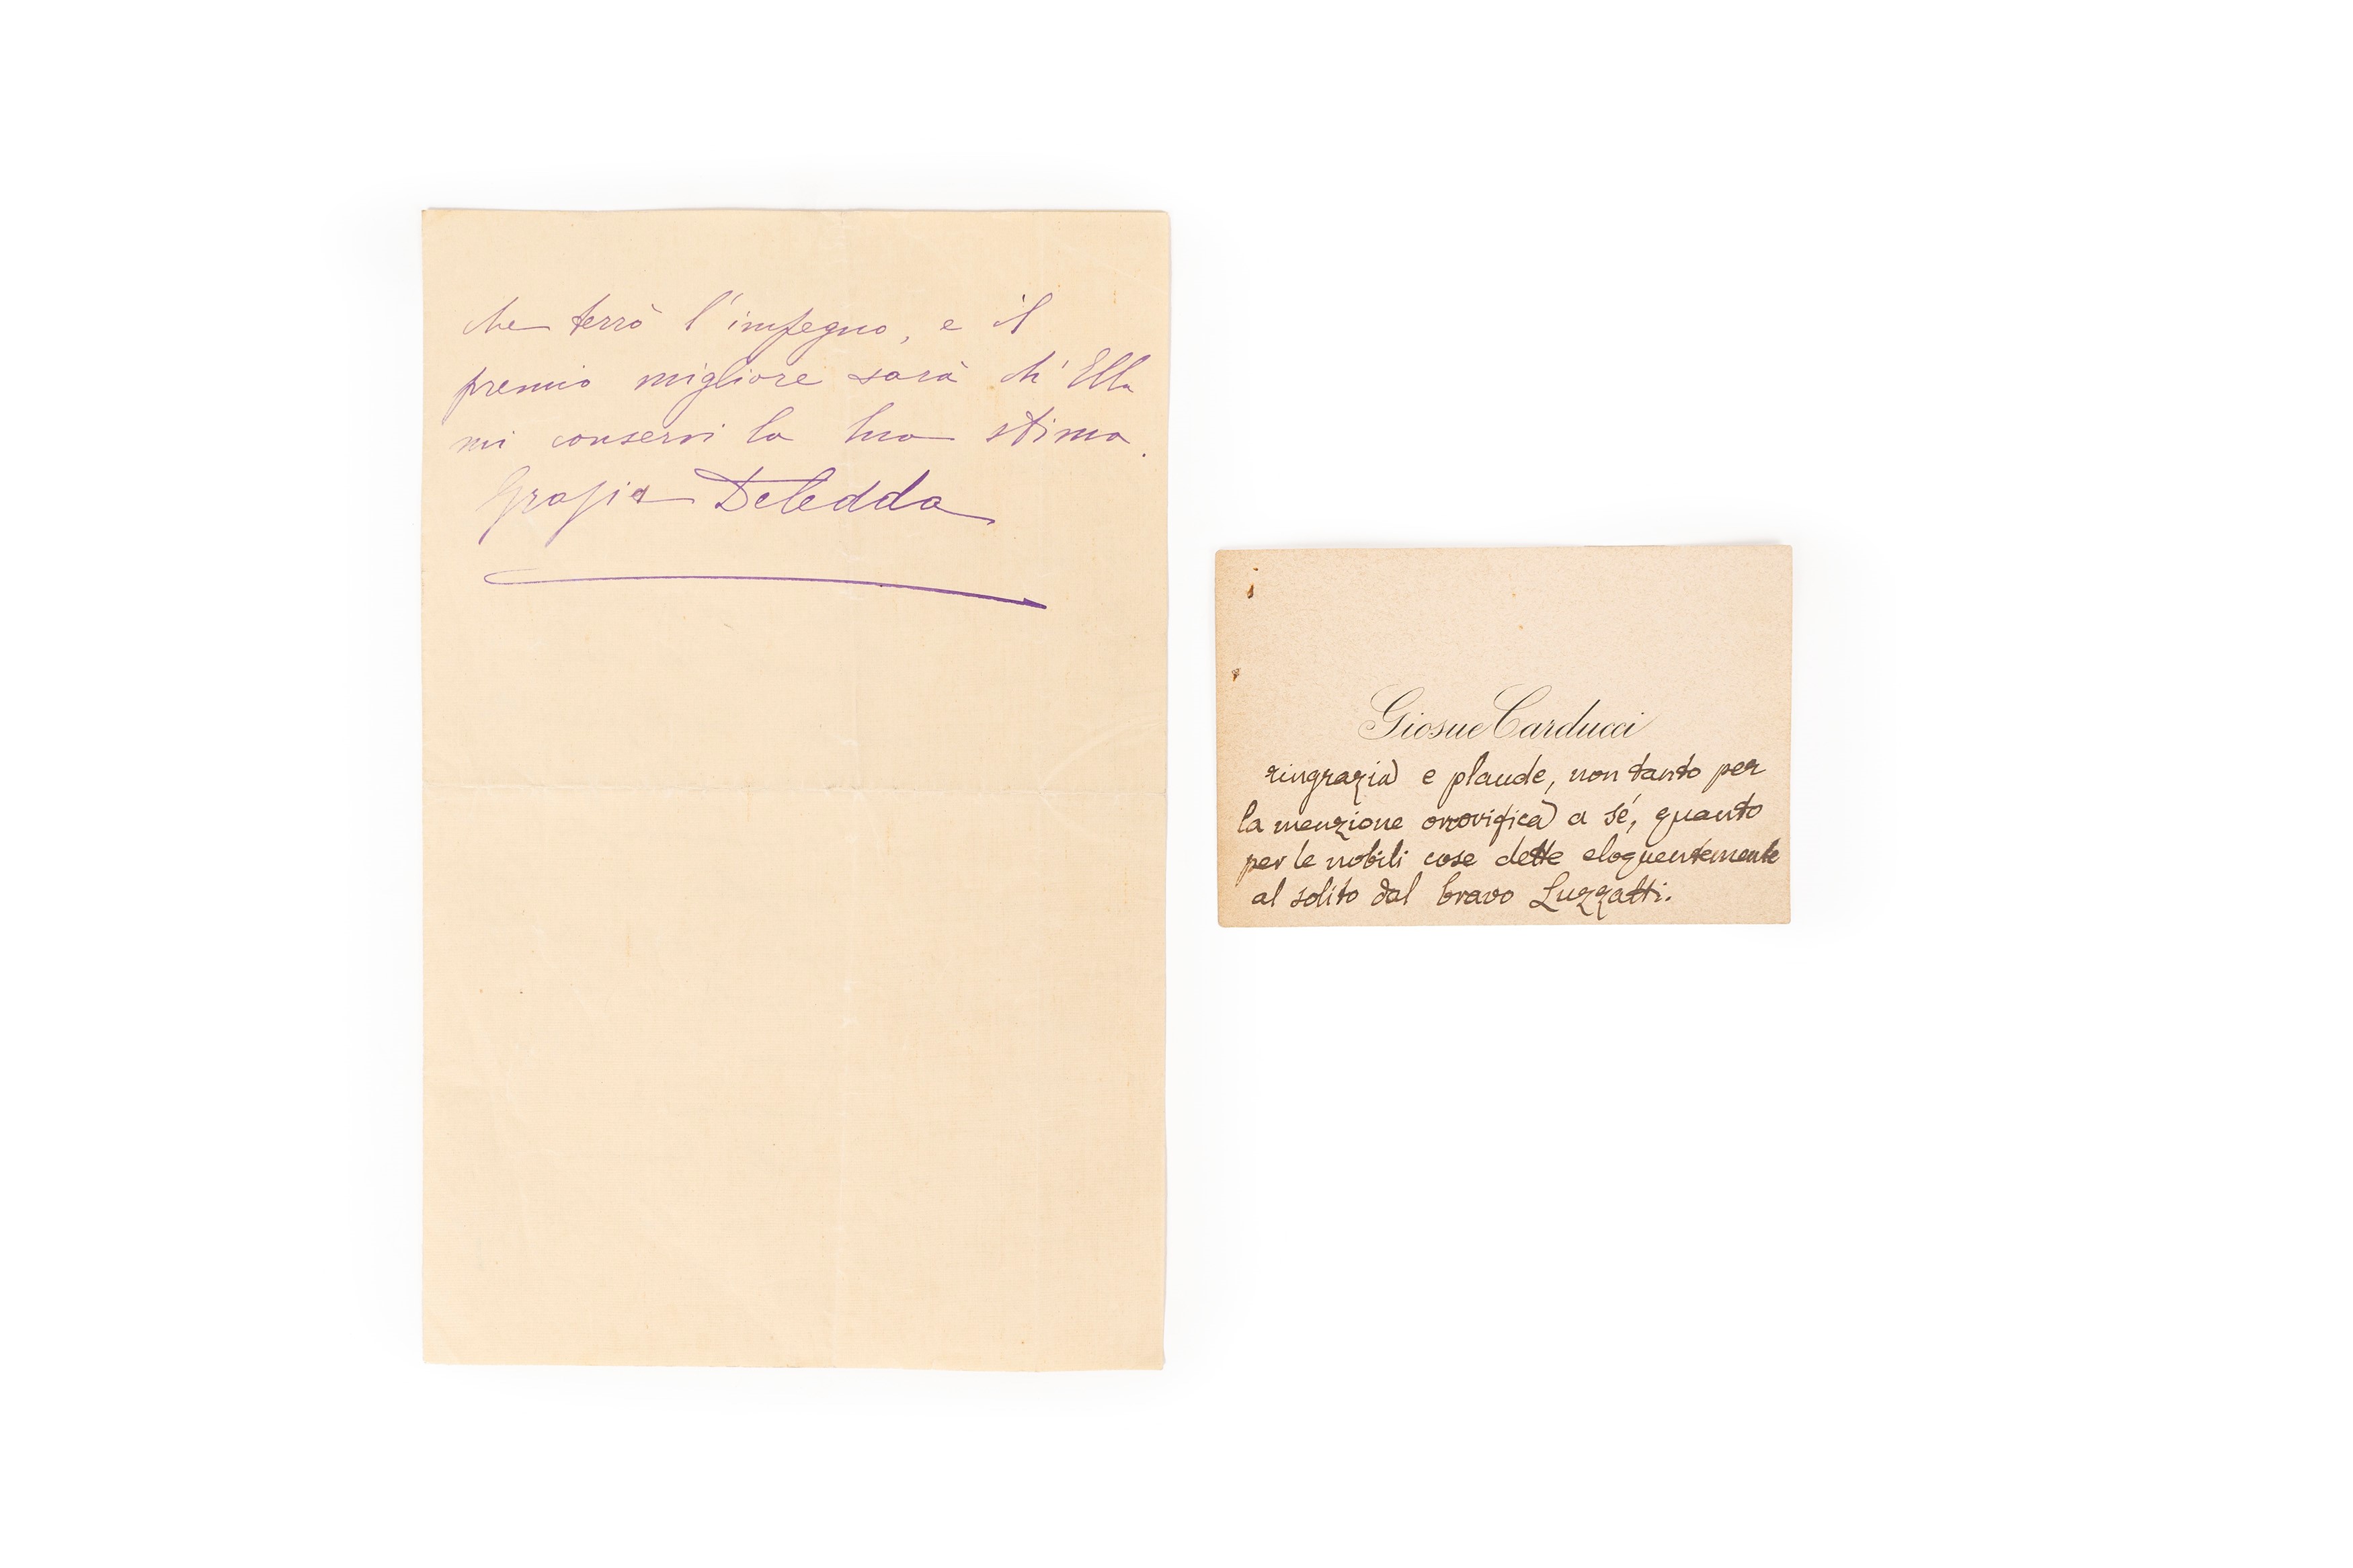 che terrò l'impegno, e il
premio migliore sarà ch'Ella
mi conservi la sua stima.
Grazia Deledda
Giosue Carducci
ringrazia e plaude, non tanto per
la menzione onorifica a sé, quanto
per le nobili cose dette eloquentemente
al solito dal bravo Luzzatti.